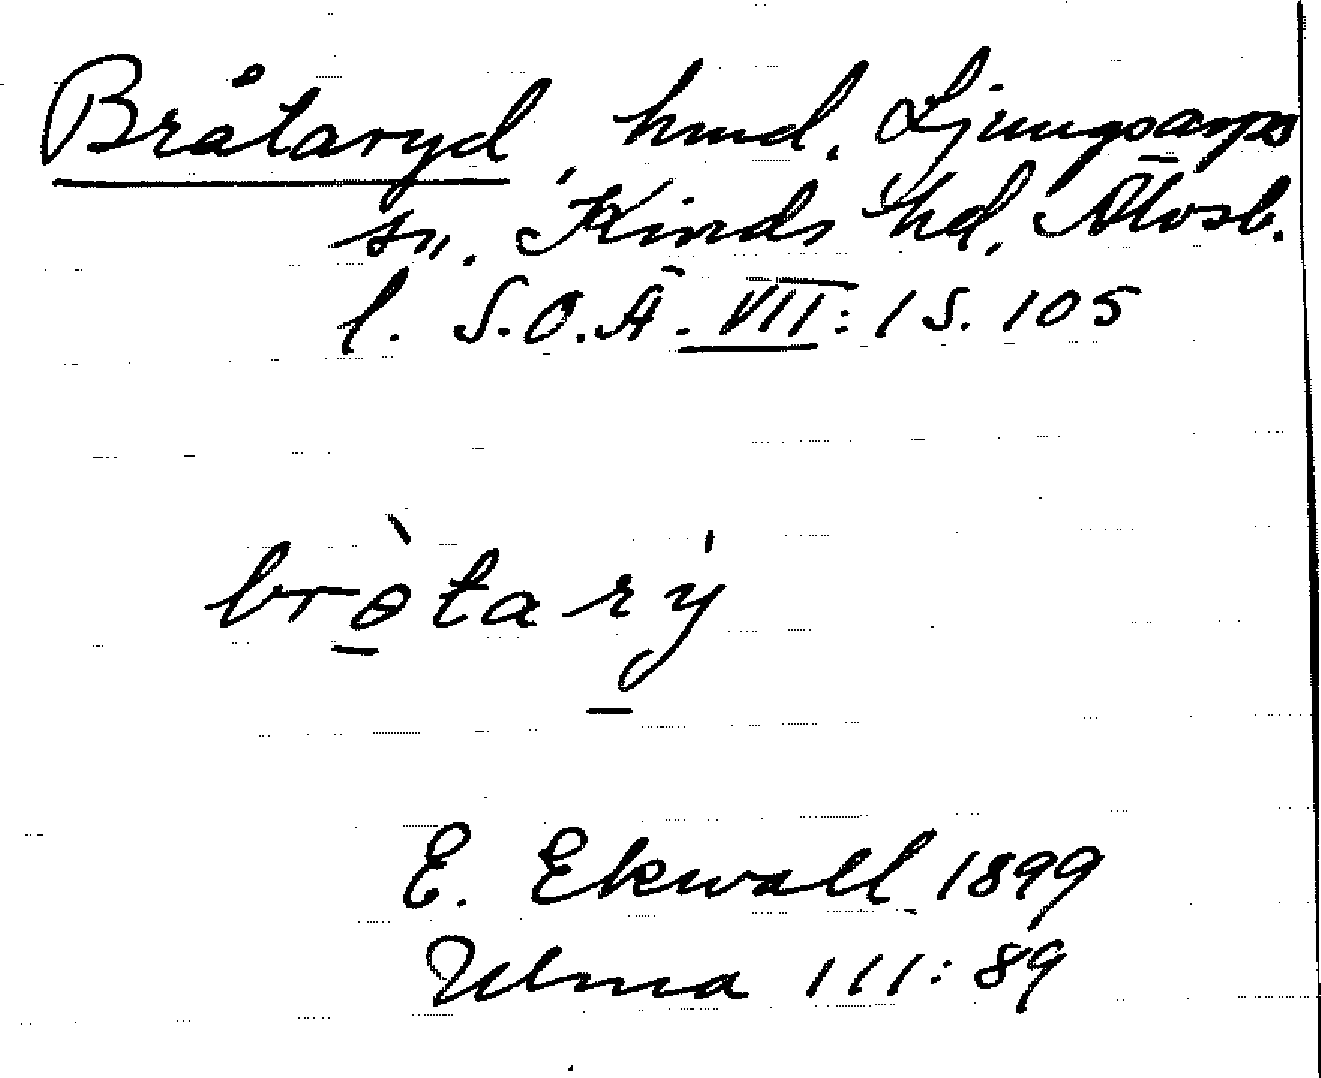 Bråtaryd, hmd. Ljungsarps
sn. Kinds hd. Älvsb.
l. S.O.Ä. VII:1 S. 105
bròtarý
E. Ekwall 1899
Ulma 111:89